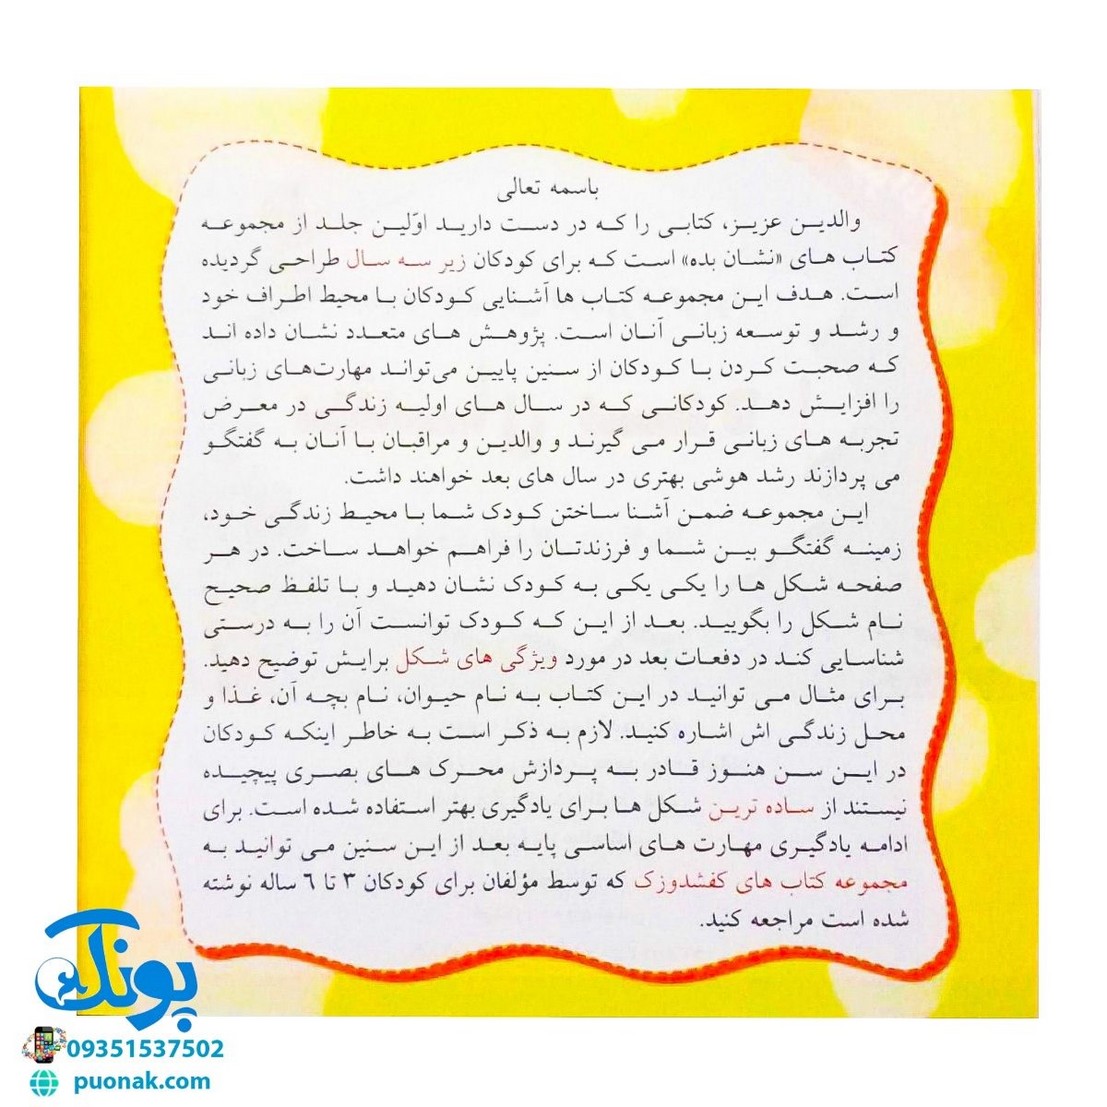 باسمه تعالی
والدین عزیز، کتابی را که در دست دارید اوّلین جلد از مجموعه
کتاب های «نشان بده» است که برای کودکان زیر سه سال طراحی گردیده
است. هدف این مجموعه کتاب ها آشنایی کودکان با محیط اطراف خود
و رشد و توسعه زبانی آنان است. پژوهش های متعدد نشان داده اند
که صحبت کردن با کودکان از سنین پایین می‌تواند مهارت‌های زبانی
را افزایش دهد. کودکانی که در سال های اولیه زندگی در معرض
تجربه های زبانی قرار می گیرند و والدین و مراقبان با آنان به گفتگو
می پردازند رشد هوشی بهتری در سال های بعد خواهند داشت.
این مجموعه ضمن آشنا ساختن کودک شما با محیط زندگی خود،
زمینه گفتگو بین شما و فرزندتان را فراهم خواهد ساخت. در هر
صفحه شکل ها را یکی یکی به کودک نشان دهید و با تلفظ صحیح
نام شکل را بگویید. بعد از این که کودک توانست آن را به درستی
شناسایی کند در دفعات بعد در مورد ویژگی های شکل برایش توضیح دهید.
برای مثال می توانید در این کتاب به نام حیوان، نام بچه آن، غذا و
محل زندگی اش اشاره کنید. لازم به ذکر است به خاطر اینکه کودکان
در این سن هنوز قادر به پردازش محرک های بصری پیچیده
نیستند از ساده ترین شکل ها برای یادگیری بهتر استفاده شده است. برای
ادامه یادگیری مهارت های اساسی پایه بعد از این سنین می توانید به
مجموعه کتاب های کفشدوزک که توسط مؤلفان برای کودکان ۳ تا ۶ ساله نوشته
شده است مراجعه کنید.
پونک
09351537502
puonak.com